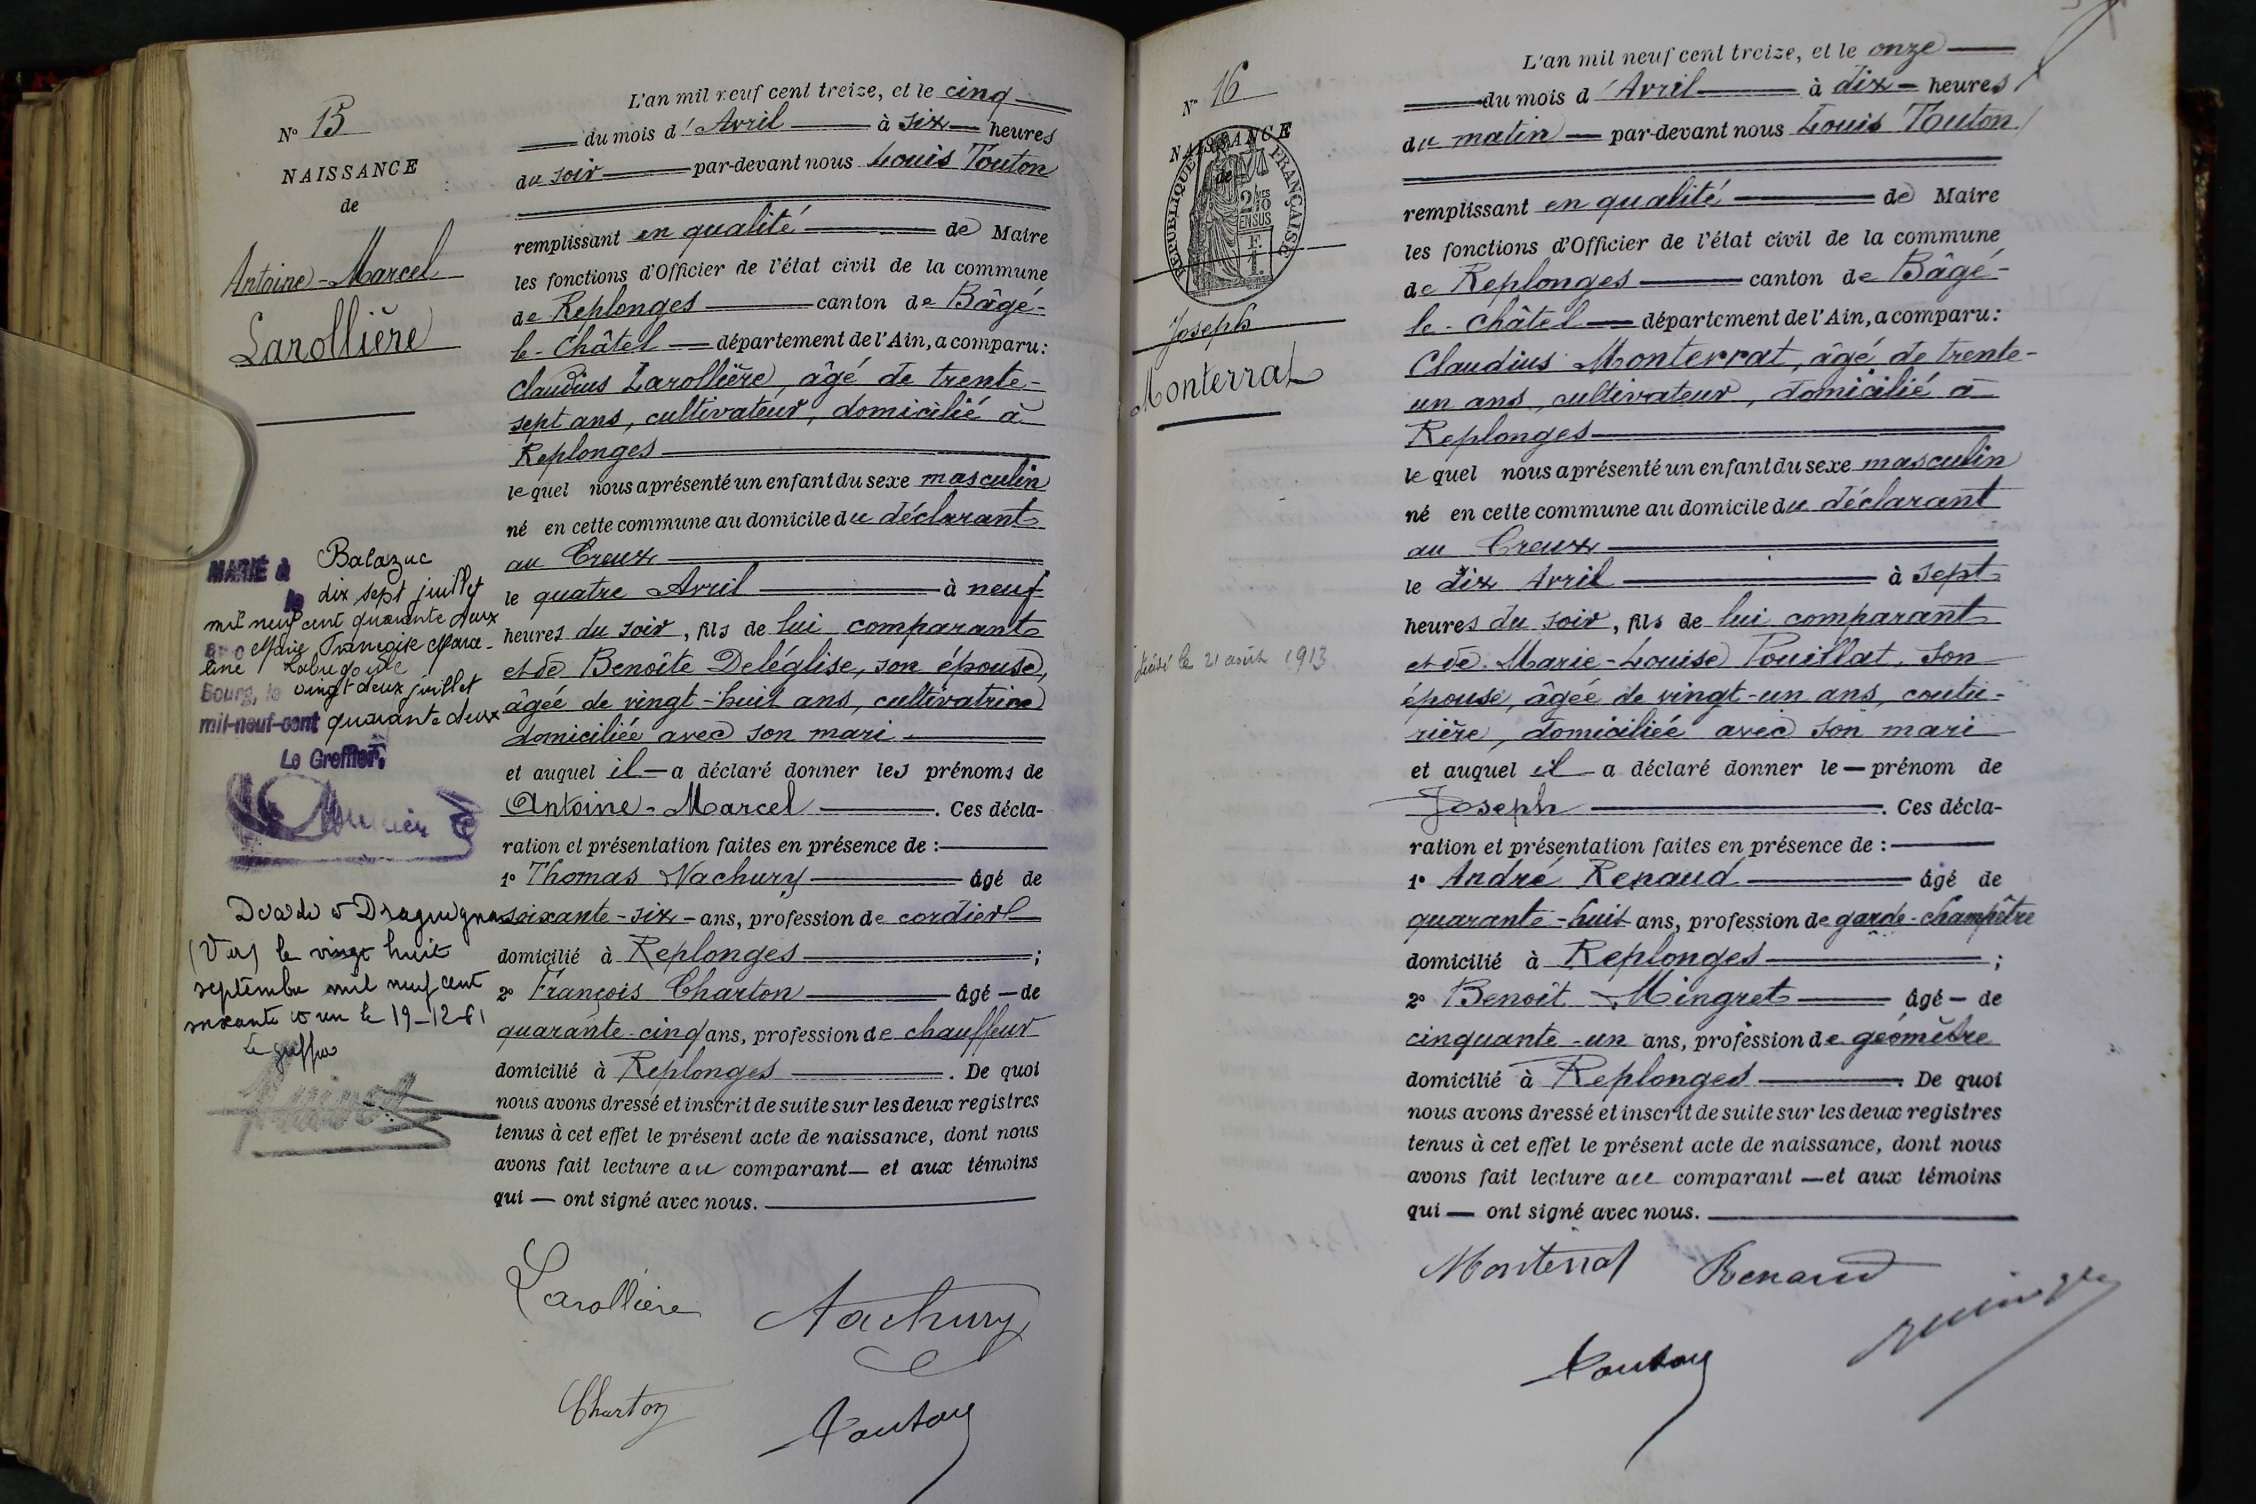 N° 15
NAISSANCE
de
Antoine-Marcel
Larollière
MARIÉ à Balazuc
le dix sept juillet
mil neuf cent quarante deux
avec Marie Françoise Marce-
line
Bourg, le vingt deux juillet
mil-neuf-cent quarante deux
Le Greffier,
Décédé à Draguignan
(Var) le vingt huit
septembre mil neuf cent
soixante et un le 19-12-61
Le greffier
L'an mil neuf cent treize, et le cinq
du mois d'Avril à six heures
du soir par-devant nous Louis Touton
remplissant en qualité de Maire
les fonctions d'Officier de l'état civil de la commune
de Replonges canton de Bâgé-
le-Châtel département de l'Ain, a comparu:
Claudius Larollière, âgé de trente-
sept ans, cultivateur, domicilié à
Replonges
le quel nous a présenté un enfant du sexe masculin
né en cette commune au domicile du déclarant
au Creux
le quatre Avril à neuf
heures du soir, fils de lui comparant
et de Benoîte Deléglise, son épouse,
âgée de vingt-huit ans, cultivatrice
domiciliée avec son mari
et auquel il a déclaré donner les prénoms de
Antoine-Marcel. Ces décla-
ration et présentation faites en présence de :
1° Thomas Nachury âgé de
soixante-six ans, profession de cordier
domicilié à Replonges ;
2° François Charton âgé de
quarante-cinq ans, profession de chauffeur
domicilié à Replonges. De quoi
nous avons dressé et inscrit de suite sur les deux registres
tenus à cet effet le présent acte de naissance, dont nous
avons fait lecture au comparant et aux témoins
qui ont signé avec nous.
Larollière Nachury
Charton Touton
N° 16
NAISSANCE
de
RÉPUBLIQUE FRANÇAISE
2/10 EN SUS
F.
1.
Joseph
Monterrat
le 21 août 1913
L'an mil neuf cent treize, et le onze
du mois d'Avril à dix heures
du matin par-devant nous Louis Touton
remplissant en qualité de Maire
les fonctions d'Officier de l'état civil de la commune
de Replonges canton de Bâgé-
le-Châtel département de l'Ain, a comparu:
Claudius Monterrat, âgé de trente-
un ans, cultivateur, domicilié à
Replonges
le quel nous a présenté un enfant du sexe masculin
né en cette commune au domicile du déclarant
au Creux
le dix Avril à sept
heures du soir, fils de lui comparant
et de Marie-Louise Pouillat, son
épouse, âgée de vingt-un ans, coutu-
rière, domiciliée avec son mari
et auquel il a déclaré donner le prénom de
Joseph. Ces décla-
ration et présentation faites en présence de :
1° André Renaud âgé de
quarante-huit ans, profession de garde-champêtre
domicilié à Replonges ;
2° Benoît Mingret âgé de
cinquante-un ans, profession de géomètre
domicilié à Replonges. De quoi
nous avons dressé et inscrit de suite sur les deux registres
tenus à cet effet le présent acte de naissance, dont nous
avons fait lecture au comparant et aux témoins
qui ont signé avec nous.
Monterrat Renaud
Touton Mingret